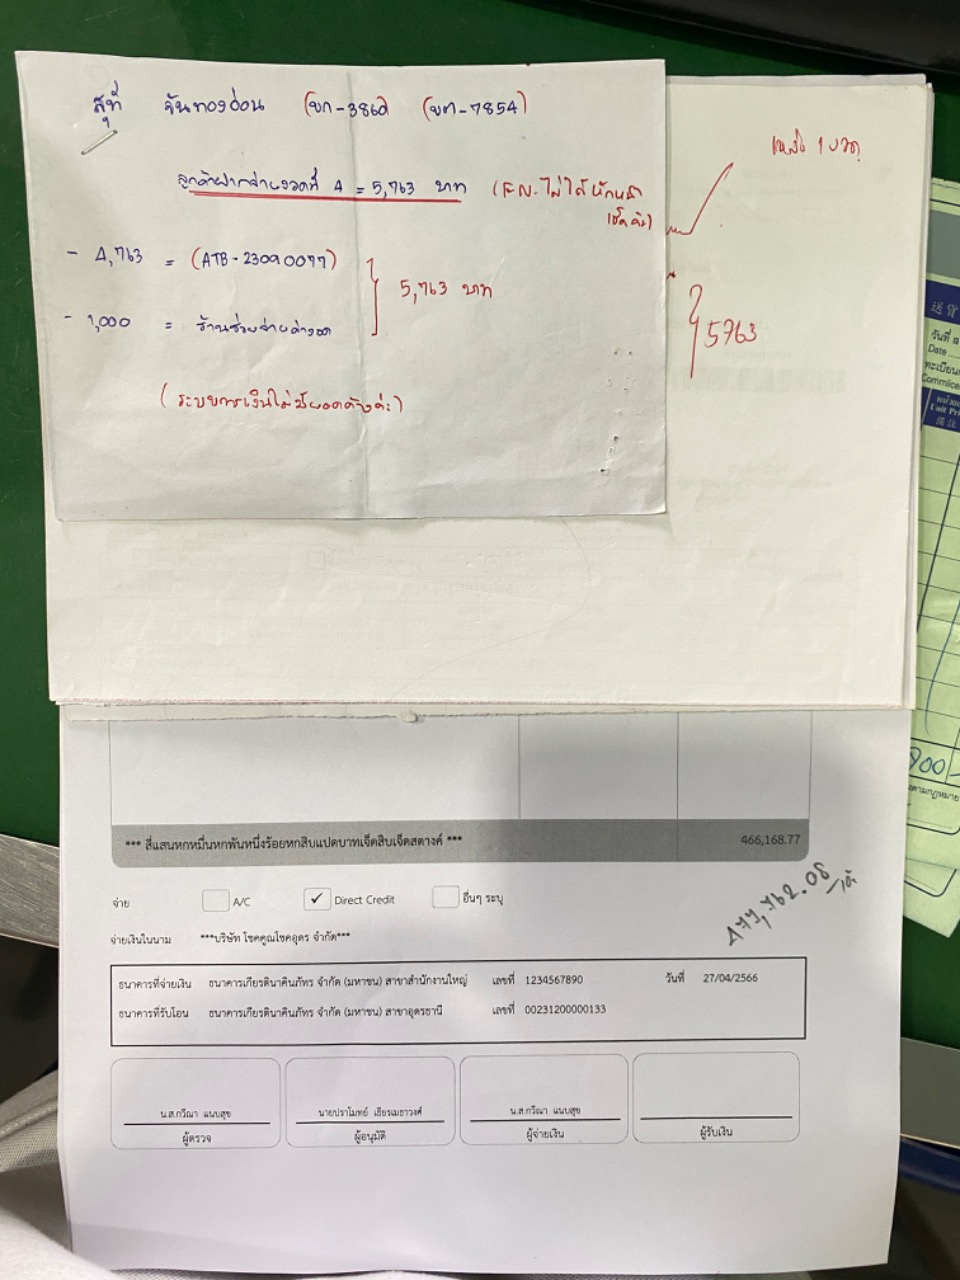 สุที จันทองอ่อน (ขก-3860) (ขต-7854)
ลูกค้าฝากจ่ายงวดที่ 4 = 5,763 บาท (สน.ไม่ได้หักหน้า
เช็คค่ะ)
- 4,763 = (ATB-23090077)
5,763 บาท
- 1,000 = ร้านช่วยจ่ายค่างวด
(ระบบการเงินไม่มียอดค้างค่ะ)
เหลือ 1 งวด
5763
送貨
วันที่
Date
ทะเบียน
Commerce
Unit Pri
備註
900
*** สี่แสนหกหมื่นหกพันหนึ่งร้อยหกสิบแปดบาทเจ็ดสิบเจ็ดสตางค์ *** 466,168.77
477,762.08
จ่าย A/C ✓ Direct Credit อื่นๆ ระบุ
จ่ายเงินในนาม ***บริษัท โชคคูณโชคอุดร จำกัด***
ธนาคารที่จ่ายเงิน ธนาคารเกียรตินาคินภัทร จำกัด (มหาชน) สาขาสำนักงานใหญ่ เลขที่ 1234567890 วันที่ 27/04/2566
ธนาคารที่รับโอน ธนาคารเกียรตินาคินภัทร จำกัด (มหาชน) สาขาอุดรธานี เลขที่ 00231200000133
น.ส.ทวีณา แนบสุข นายปราโมทย์ เธียรเมธาวงศ์ น.ส.ทวีณา แนบสุข
ผู้ตรวจ ผู้อนุมัติ ผู้จ่ายเงิน ผู้รับเงิน